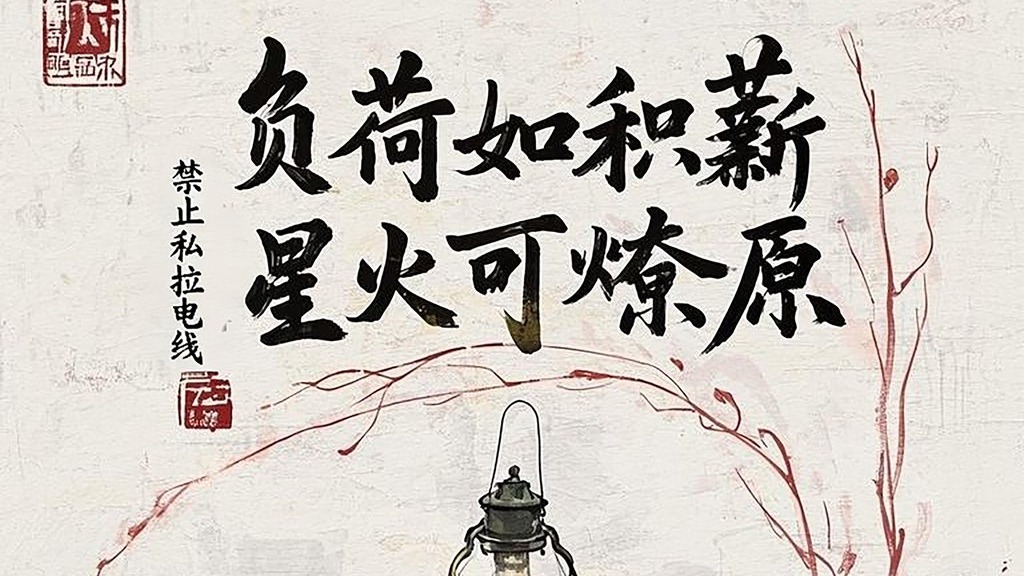 负荷如积薪
星火可燎原
禁止私拉电线